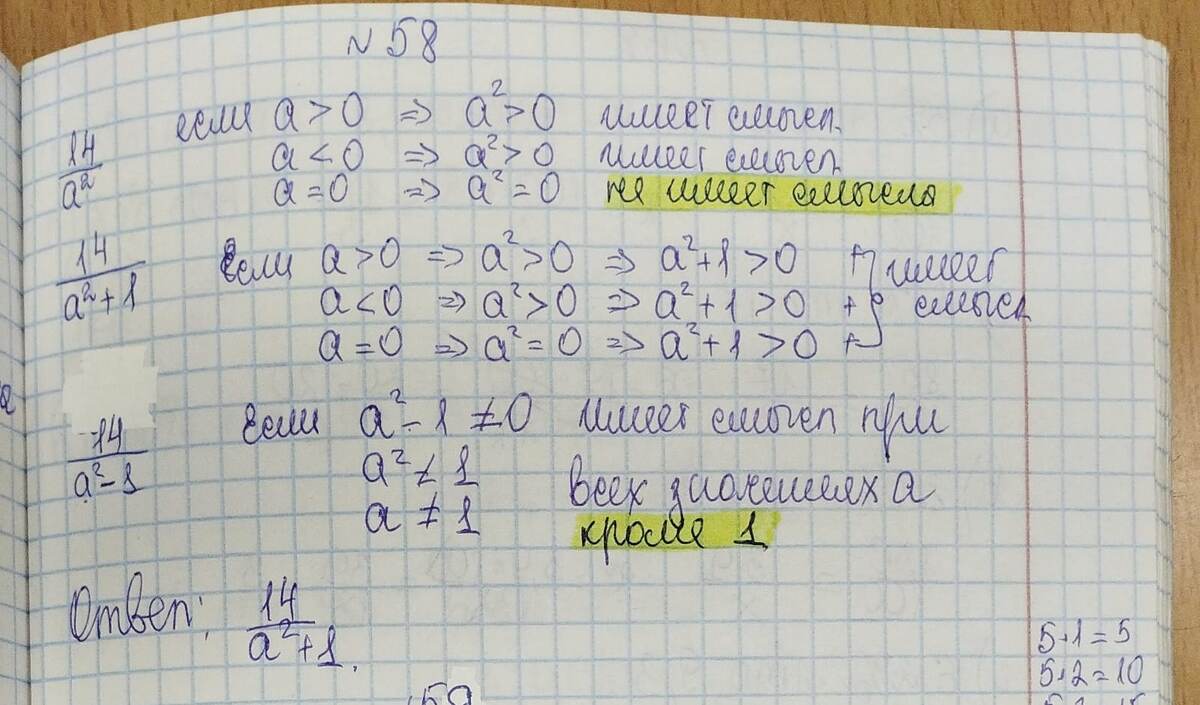 №58
если a > 0 ⇒ a² > 0 имеет смысл.
14/a² a < 0 ⇒ a² > 0 имеет смысл.
a = 0 ⇒ a² = 0 не имеет смысла
14/(a² + 1) Если a > 0 ⇒ a² > 0 ⇒ a² + 1 > 0 + } имеет
a < 0 ⇒ a² > 0 ⇒ a² + 1 > 0 + } смысл
a = 0 ⇒ a² = 0 ⇒ a² + 1 > 0 + }
14/(a² - 1) Если a² - 1 ≠ 0 имеет смысл при
a² ≠ 1 всех значениях a
a ≠ 1 кроме 1
Ответ: 14/(a² + 1).
5·1 = 5
5·2 = 10
59